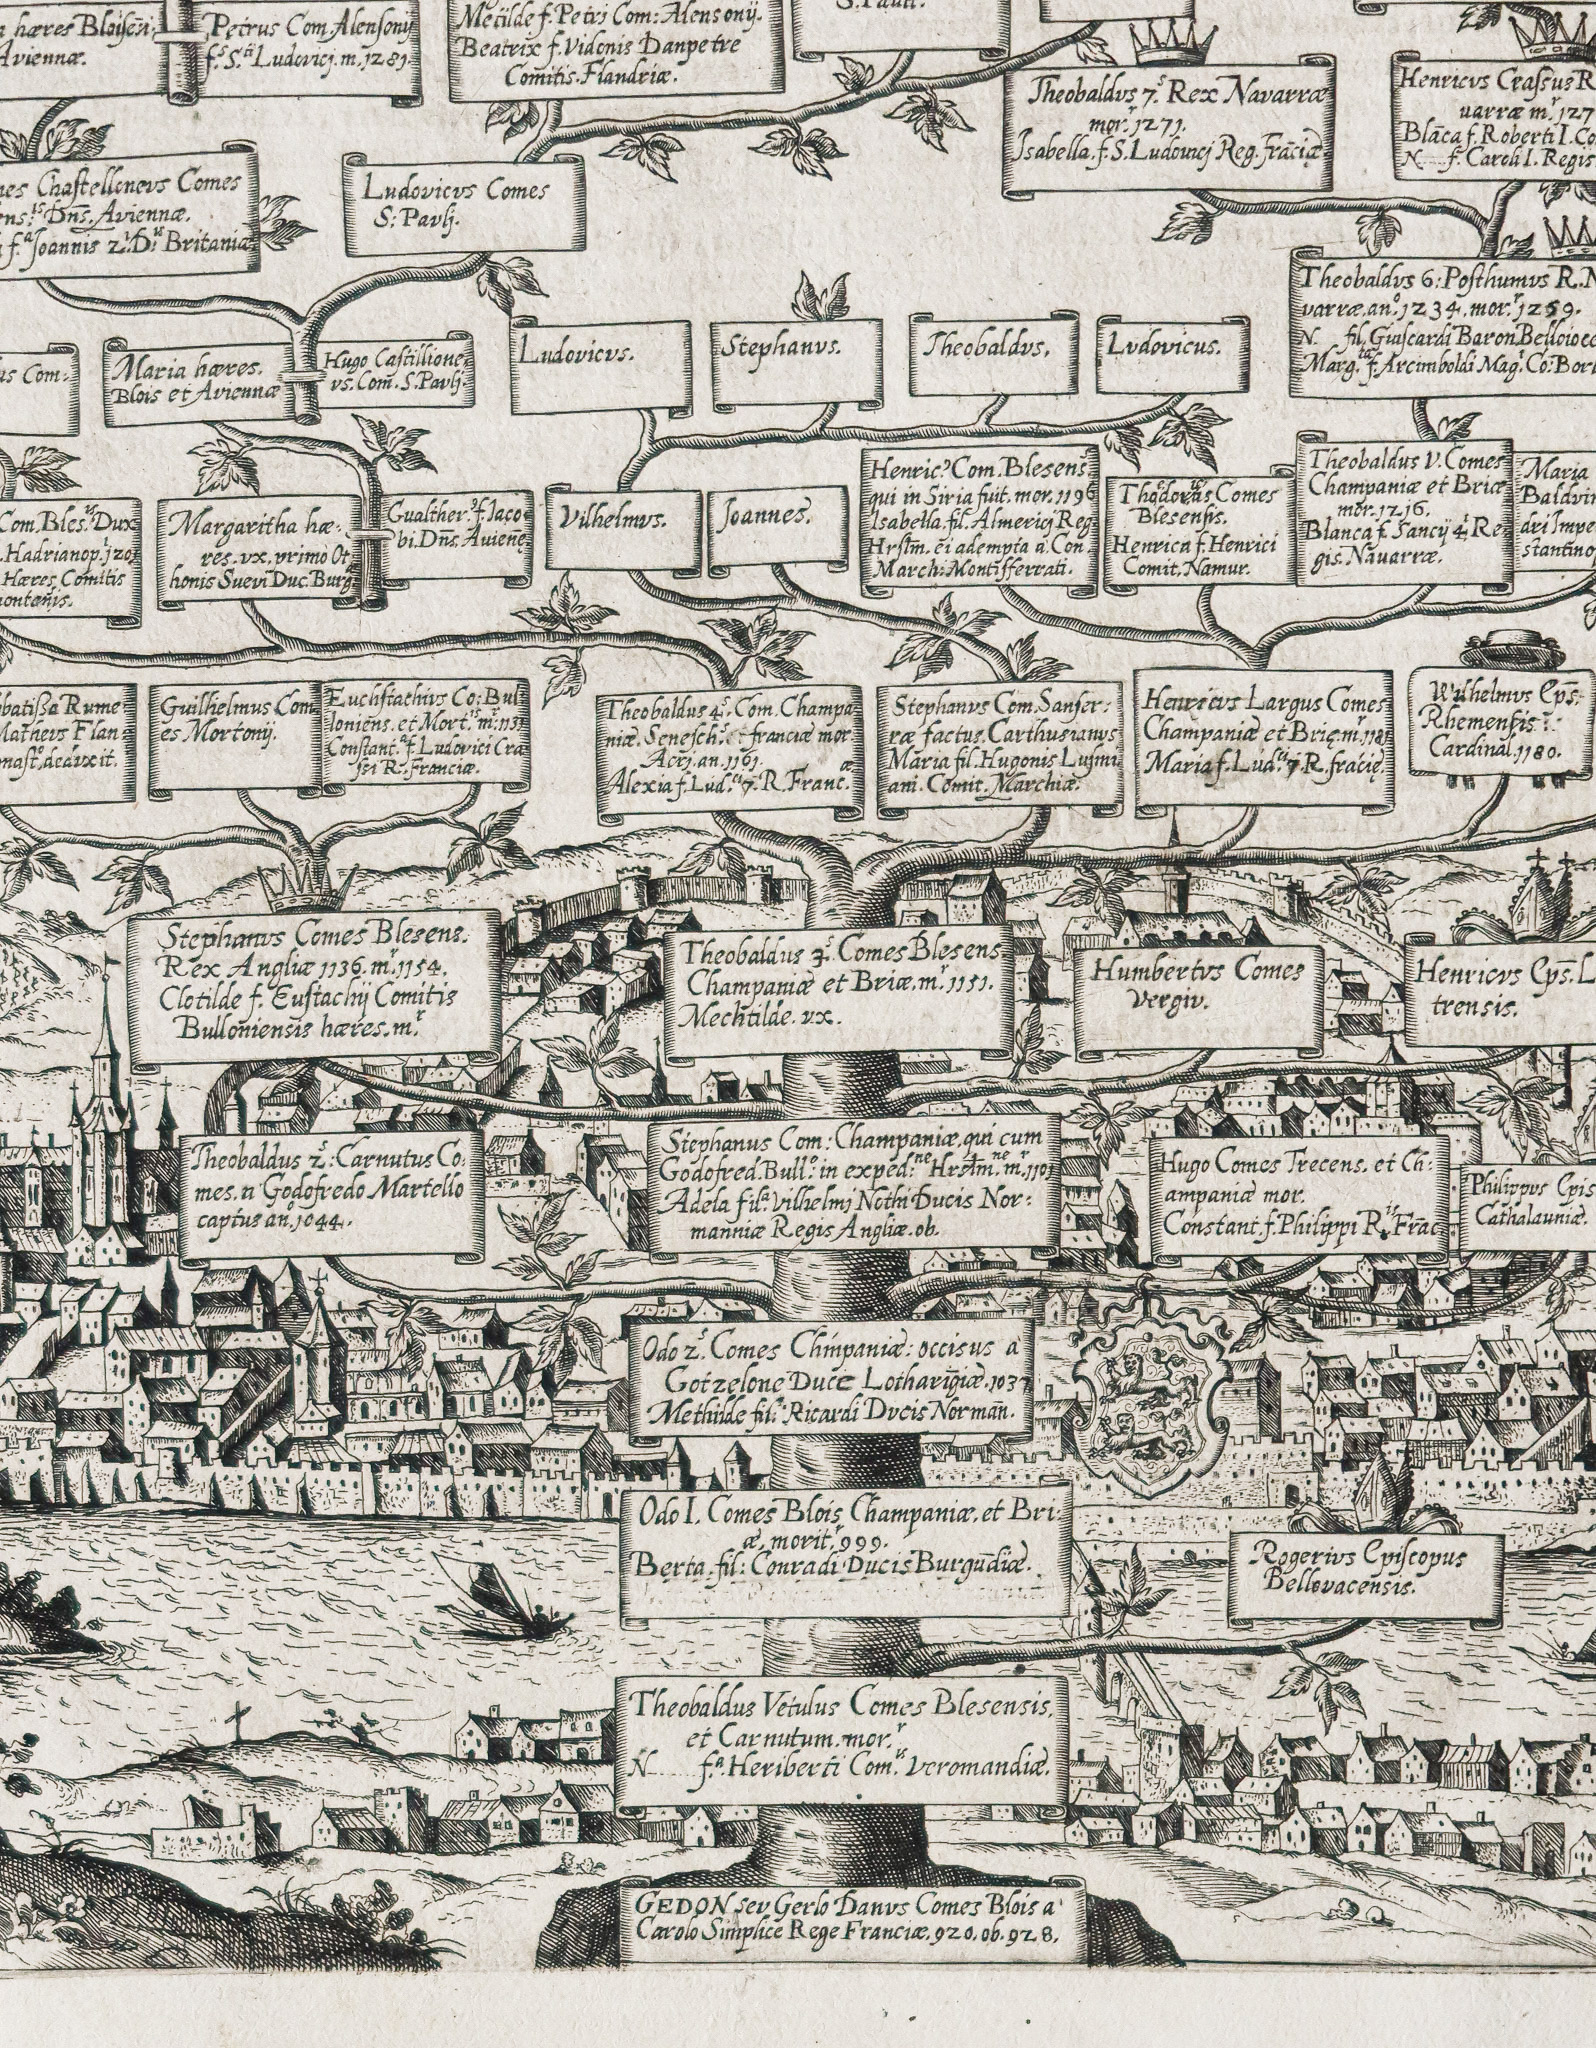 hæres Blœsēn;
Aviennæ.
Petrus Com. Alensonij
f. S. Ludovicj. m. 1281.
Metilde f. Petri Com: Alensonij.
Beatrix f. Vidonis Danpetre
Comitis. Flandriæ.
Theobaldvs 7.s Rex Navarræ
mor. 1271.
Isabella. f. S. Ludovicj Reg. Frāciæ
Henricvs Crassus R
uarræ m.r 127
Blāca f. Roberti I. Co
N f. Caroli I. Regis
nes Chastelleneus Comes
ens.is Dn̄s. Aviennæ.
f.a Joannis 2.i D. Britaniæ
Ludovicvs Comes
S: Pavlj.
Theobaldvs 6: Posthumvs R. N
varræ. an.o 1234. mor.r 1259.
N. fil. Guiscardi Baron. Belloioco
Marg.ta f. Arcimboldi Mag.i Co: Borb
us Com:
Maria hæres.
Blois et Aviennæ
Hugo Castillione,
vs. Com. S. Pavlj.
Ludovicvs.
Stephanvs.
Theobaldvs.
Lvdovicus.
Com. Bles.is Dux
Hadrianop. 120
Hæres Comitis
Margaritha hæ:
res. vx. primò Ot
honis Suevi Duc. Burg
Gualther. f. Iaco
bi. Dn̄s. Avienę
Vilhelmvs.
Joannes.
Henric9 Com. Blesens
qui in Siria fuit. mor. 1196
Isabella. fil. Almericj Reg
Hrslm. ei adempta a Con
March: Montisferrati.
Thodorus Comes
Blesensis.
Henrica f. Henrici
Comit. Namur.
Theobaldus V. Comes
Champaniæ et Briæ
mor. 1216.
Blanca f. Sancij 4.i Re
gis. Navarræ.
Maria
Balduin
dri Impe
stantino
batissa Rume
Matheus Flan
Guilhelmus Com
es Mortonij.
Euchstachivs Co: Bul
loniens. et Mort. m. 1153
Constant. f. Ludovici Cra
ssi R. Franciæ.
Theobaldus 4.s Com. Champa
niæ. Senesch. franciæ mor
Acrj. an. 1161.
Alexia f. Lud.ci 7. R. Franc.æ
Stephanvs Com. Sanser:
ræ factus. Carthusianvs
Maria fil. Hugonis Lusini
ani. Comit. Marchiæ.
Henricvs Largus Comes
Champaniæ et Brię. m.r 1181
Maria f. Lud.ci 7. R. frācię.
Wilhelmvs Eps.
Rhemensis.
Cardinal. 1180.
Stephanvs Comes Blesens.
Rex Angliæ 1136. m.r 1154.
Clotilde f. Eustachij Comitis
Bulloniensis hæres. m.r
Theobaldus 3.s Comes Blesens
Champaniæ et Briæ. m.r 1151.
Mechtilde. vx.
Humbertvs Comes
Vergiv.
Henricvs Eps. L
trensis.
Theobaldus 2.s: Carnutus Co:
mes. a Godofredo Martello
captus an.o 1044.
Stephanus Com: Champaniæ, qui cum
Godofred. Bull.o: in exped.ne Hrslm.ne m.r 1101
Adela fil.a Vilhelmj Nothi Ducis Nor:
manniæ Regis Angliæ. ob.
Hugo Comes Trecens. et Ch:
ampaniæ mor.
Constant. f. Philippi R.is Frāc
Philippus Epis
Cathalauniæ.
Odo 2.s Comes Chmpaniæ: occisus a
Gotzelone Duce Lotharīgiæ. 1037
Methilde fil.a Ricardi Dvcis Norman.
Odo I. Comes Blois Champaniæ. et Bri:
æ. morit.r 999.
Berta. fil: Conradi Ducis Burgūdiæ.
Rogerivs Episcopus
Bellovacensis.
Theobaldus Vetulus Comes Blesensis,
et Carnutum. mor.r
N f.a Heriberti Com.is Veromandiæ.
GEDON sev Gerlo Danvs Comes Blois a
Carolo Simplice Rege Franciæ. 920. ob. 928.